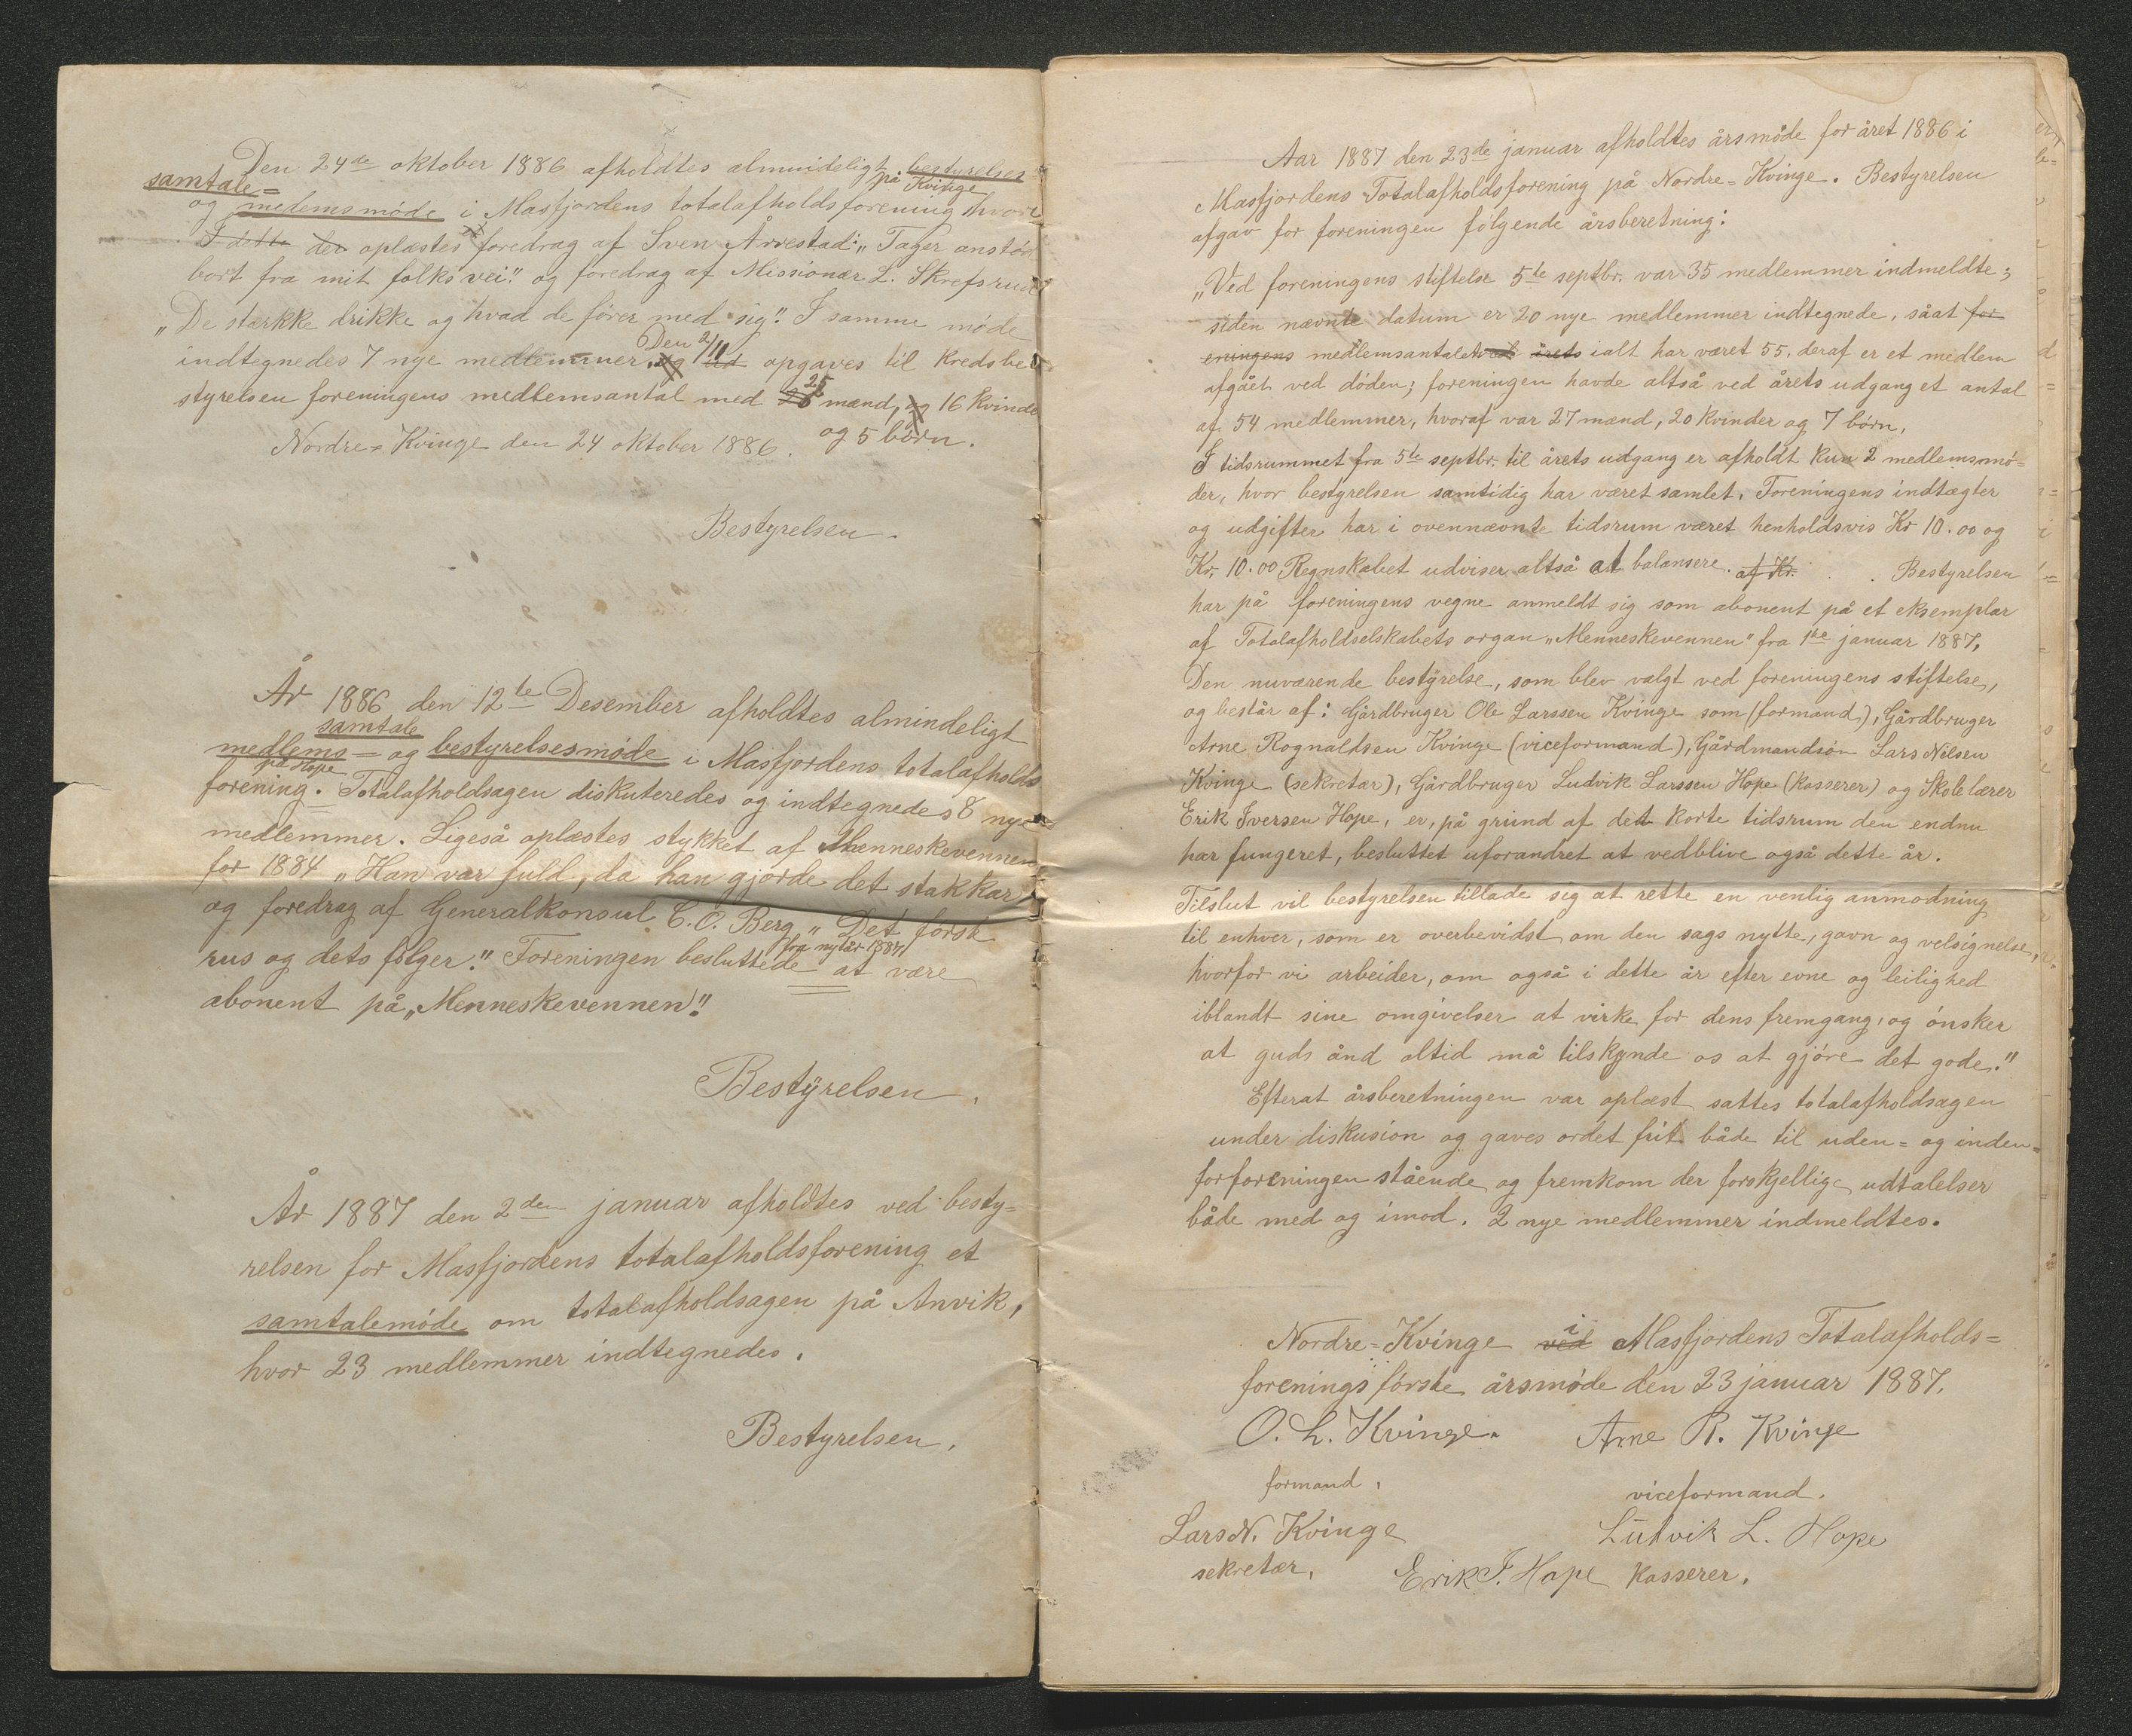 Den 24de oktober 1886 afholdtes almindeligt bestyrelses
samtale=
på Kvinge
og medemsmøde i Masfjordens totalafholdsforening hvori
I dette der oplæstes foredrag af Sven Årrestad: „Tager anstød
bort fra mit folks vei." og foredrag af Missionær L. Skrefsrud
„De stærkke drikke og hvad de fører med sig". I samme møde
Den 2/11
indtegnedes 7 nye medlemmer. og ud opgaves til Kredsbe
25
styrelsen foreningens medlemsantal med mænd, og 16 Kvinde
og 5 børn.
Nordre=Kvinge den 24 oktober 1886.
Bestyrelsen.
År 1886 den 12te Desember afholdtes almindeligt
samtale
medlems= og bestyrelsesmøde i Masfjordens totalafholds
på Hope
forening. Totalafholdsagen diskuteredes og indtegnedes 8 nye
medlemmer. Ligeså oplæstes stykket af Menneskevennen
for 1884 „Han var fuld, da han gjorde det stakkar
og foredrag af Generalkonsul C. O. Berg „Det første
fra nytår 1887
rus og dets følger." Foreningen besluttede at være
abonent på „Menneskevennen".
Bestyrelsen.
År 1887 den 2den januar afholdtes ved besty=
relsen for Masfjordens totalafholdsforening et
samtalemøde om totalafholdsagen på Anvik,
hvor 23 medlemmer indtegnedes.
Bestyrelsen.
Aar 1887 den 23de januar afholdtes årsmøde for året 1886 i
Masfjordens Totalafholdsforening på Nordre=Kvinge. Bestyrelsen
afgav for foreningen følgende årsberetning:
„Ved foreningens stiftelse 5te septbr. var 35 medlemmer indmeldte;
siden nævnte datum er 20 nye medlemmer indtegnede, såat for
eningens medlemsantalet årets ialt har været 55, deraf er et medlem
afgået ved døden; foreningen havde altså ved årets udgang et antal
af 54 medlemmer, hvoraf var 27 mænd, 20 kvinder og 7 børn.
I tidsrummet fra 5te septbr. til årets udgang er afholdt kun 2 medlemsmø=
der, hvor bestyrelsen samtidig har været samlet. Foreningens indtægter
og udgifter har i ovennævnte tidsrum været henholdsvis Kr 10.00 og
Kr. 10.00 Regnskabet udviser altså at balansere. af Kr. Bestyrelsen
har på foreningens vegne anmeldt sig som abonent på et eksemplar
af Totalafholdselskabets organ „Menneskevennen" fra 1ste januar 1887.
Den nuværende bestyrelse, som blev valgt ved foreningens stiftelse,
og består af: Gårdbruger Ole Larssen Kvinge som (formand), Gårdbruger
Arne Rognaldsen Kvinge (viceformand), Gårdmandsøn Lars Nilsen
Kvinge (sekretær), Gårdbruger Ludvik Larssen Hope (kasserer) og Skolelærer
Erik Iversen Hope, er, på grund af det korte tidsrum den endnu
har fungeret, besluttet uforandret at vedblive også dette år.
Tilslut vil bestyrelsen tillade sig at rette en venlig anmodning
til enhver, som er overbevidst om den sags nytte, gavn og velsignelse,
hvorfor vi arbeider, om også i dette år efter evne og leilighed
iblandt sine omgivelser at virke for dens fremgang, og ønsker
at guds ånd altid må tilskynde os at gjøre det gode."
Efterat årsberetningen var oplæst sattes totalafholdsagen
under diskusion og gaves ordet frit både til uden= og inden=
forforeningen stående og fremkom der forskjellige udtalelser
både med og imod. 2 nye medlemmer indmeldtes.
i
Nordre=Kvinge ved Masfjordens Totalafholds=
forenings første årsmøde den 23 januar 1887.
O. L. Kvinge. Arne R. Kvinge
formand. viceformand.
Lars N. Kvinge Ludvik L. Hope
sekretær. Erik I. Hope kasserer.